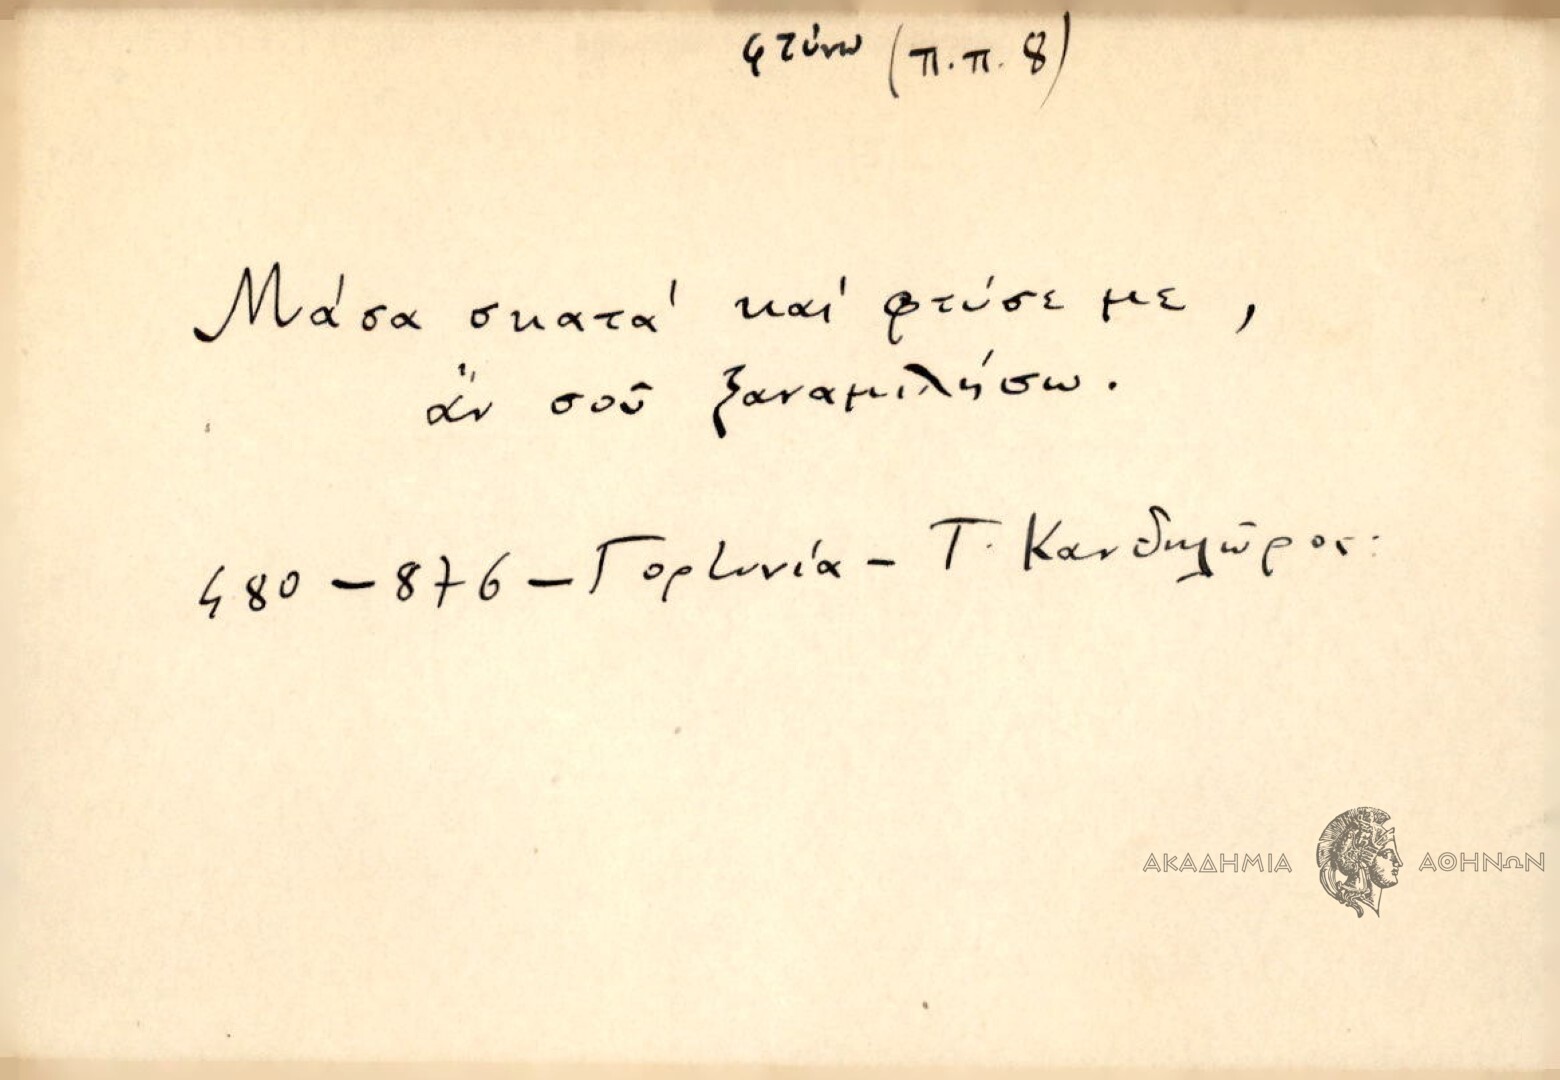 φτύνω (π.π. 8)
Μάσα σκατά καί φτύσε με,
ἄν σοῦ ξαναμιλήσω.
480 – 876 – Γορτυνία – Τ. Κανδηλῶρος.
ΑΚΑΔΗΜΙΑ ΑΘΗΝΩΝ